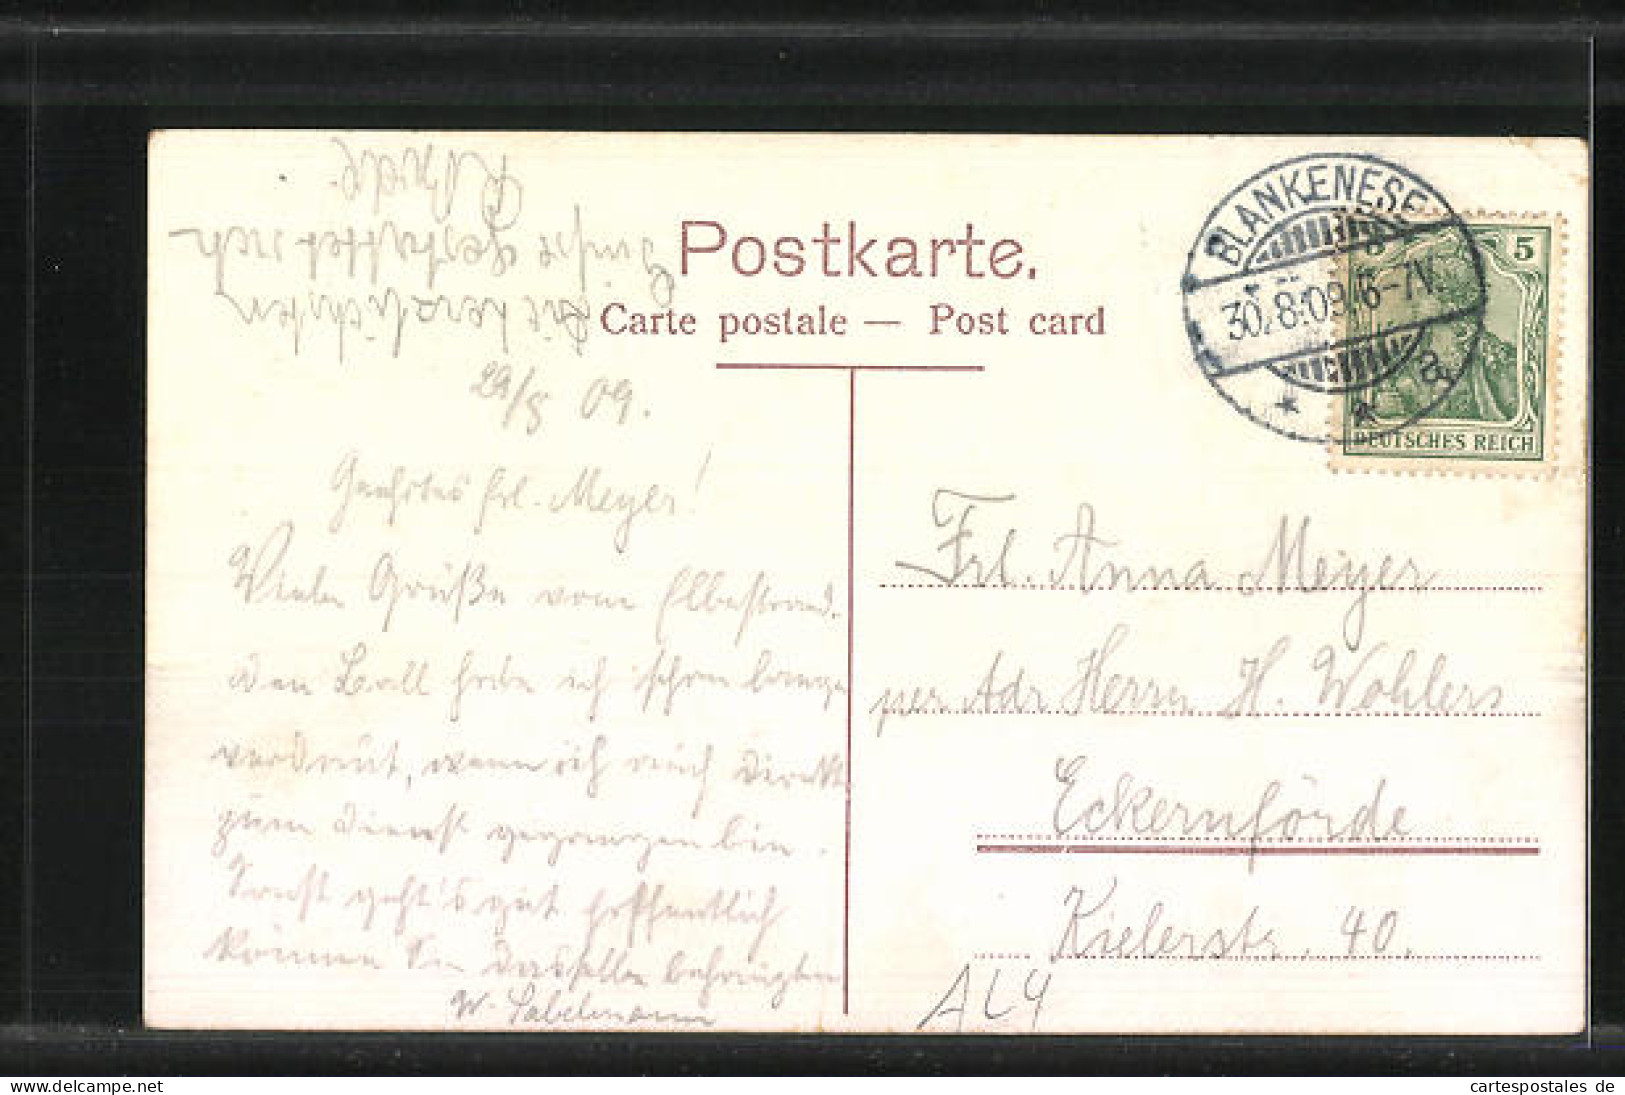 Postkarte.
Carte postale — Post card
BLANKENESE
30.8.09. 6-7N.
* * a
5
DEUTSCHES REICH
Die herzlichsten
Grüße gestattet sich
29/8 09.
Geehrtes Frl. Meyer!
Viele Grüße vom Elbestrand.
Den Ball habe ich schon lange
verdaut, wenn ich auch direkt
zum Dienst gegangen bin.
Sonst geht's gut hoffentlich
können Sie dasselbe behaupten
Frl. Anna Meyer
per Adr Herrn H. Wohlers
Eckernförde
Kielerstr. 40.
AL4
delcampe.net
cartespostales de